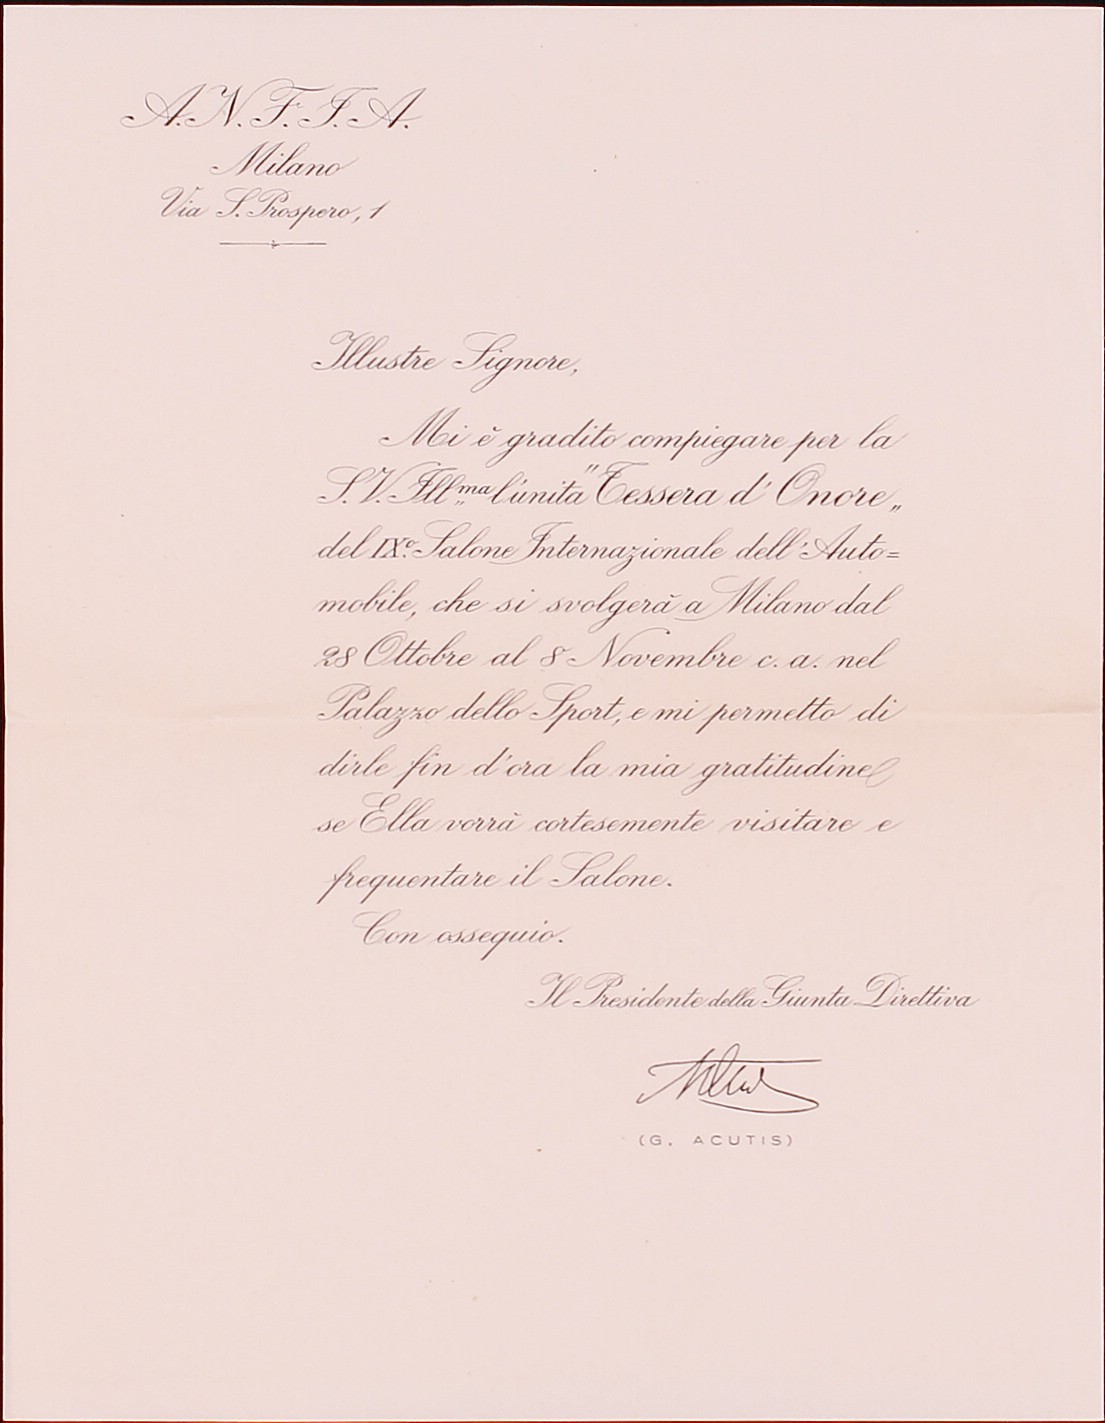 A.N.F.I.A.
Milano
Via S. Prospero, 1
Illustre Signore,
Mi è gradito compiegare per la
S.V. Ill.ma l'unita "Tessera d'Onore„
del IX.º Salone Internazionale dell'Auto=
mobile, che si svolgerà a Milano dal
28 Ottobre al 8 Novembre c. a. nel
Palazzo dello Sport, e mi permetto di
dirle fin d'ora la mia gratitudine
se Ella vorrà cortesemente visitare e
frequentare il Salone.
Con ossequio.
Il Presidente della Giunta Direttiva
(G. ACUTIS)